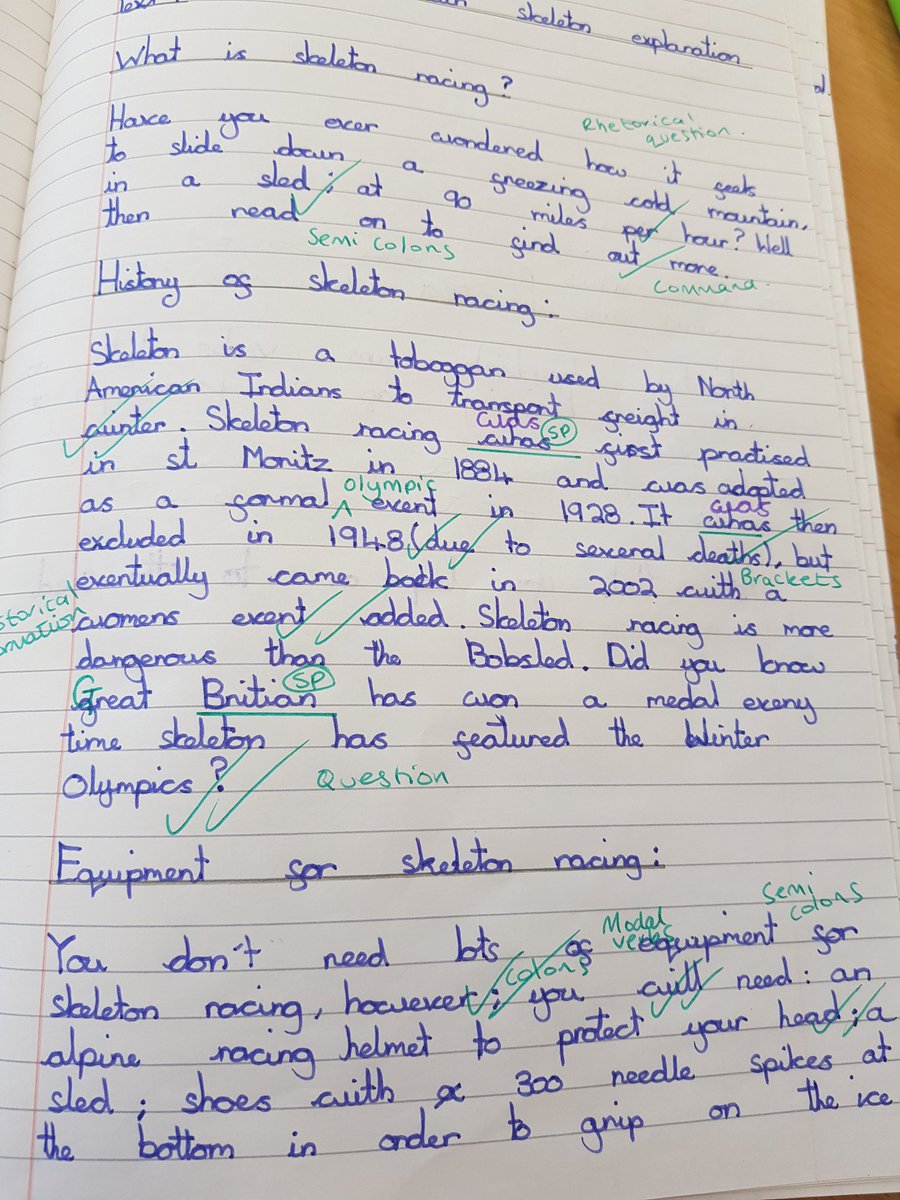 skeleton explanation
What is skeleton racing?
Rhetorical question.
Have you ever wondered how it feels
to slide down a freezing cold mountain,
in a sled; at 90 miles per hour? Well
then read on to find out more.
Semi colons
Command.
History of skeleton racing:
Skeleton is a toboggan used by North
American Indians to transport freight in
winter. Skeleton racing whas first practised
was SP
in st Moritz in 1884 and was adopted
Olympic
as a formal ^ event in 1928. It whas then
was
excluded in 1948 (due to several deaths), but
Brackets
eventually came back in 2002 with a
womens event added. Skeleton racing is more
dangerous than the Bobsled. Did you know
SP
Great Britian has won a medal every
time skeleton has featured the Winter
Olympics?
Question
Equipment for skeleton racing:
Semi colons
Modal verbs
You don't need lots of equipment for
colons
skeleton racing, however; you will need: an
alpine racing helmet to protect your head; a
sled; shoes with 300 needle spikes at
the bottom in order to grip on the ice